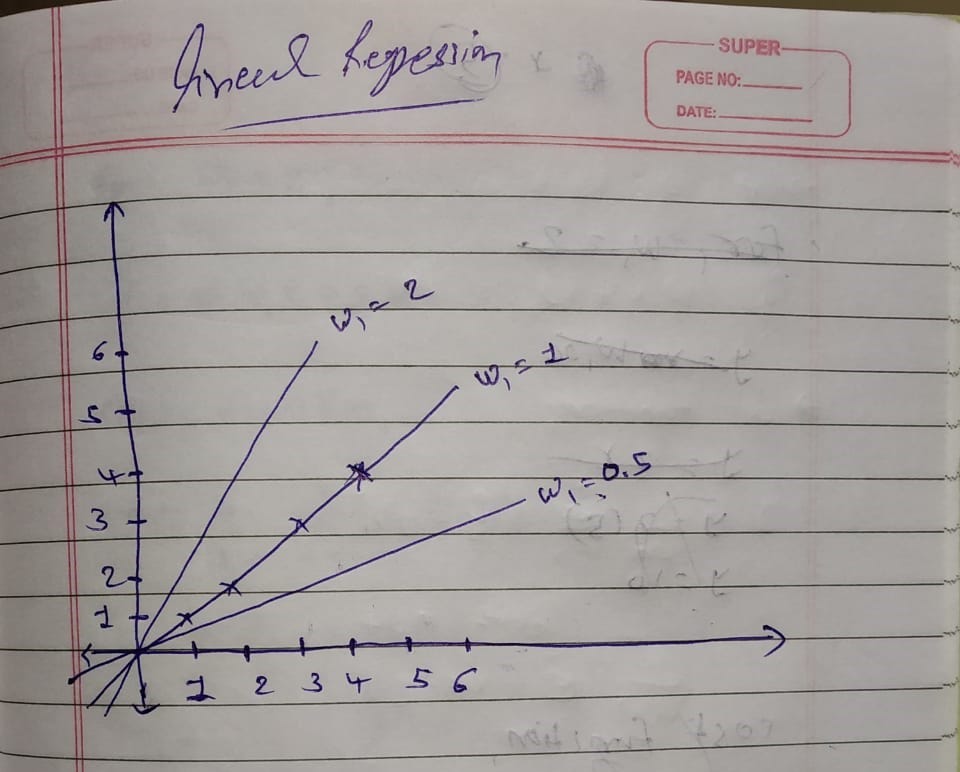 Linear Regression
SUPER
PAGE NO:
DATE:
w₁ = 2
w₁ = 1
w₁ = 0.5
6
5
4
3
2
1
1 2 3 4 5 6